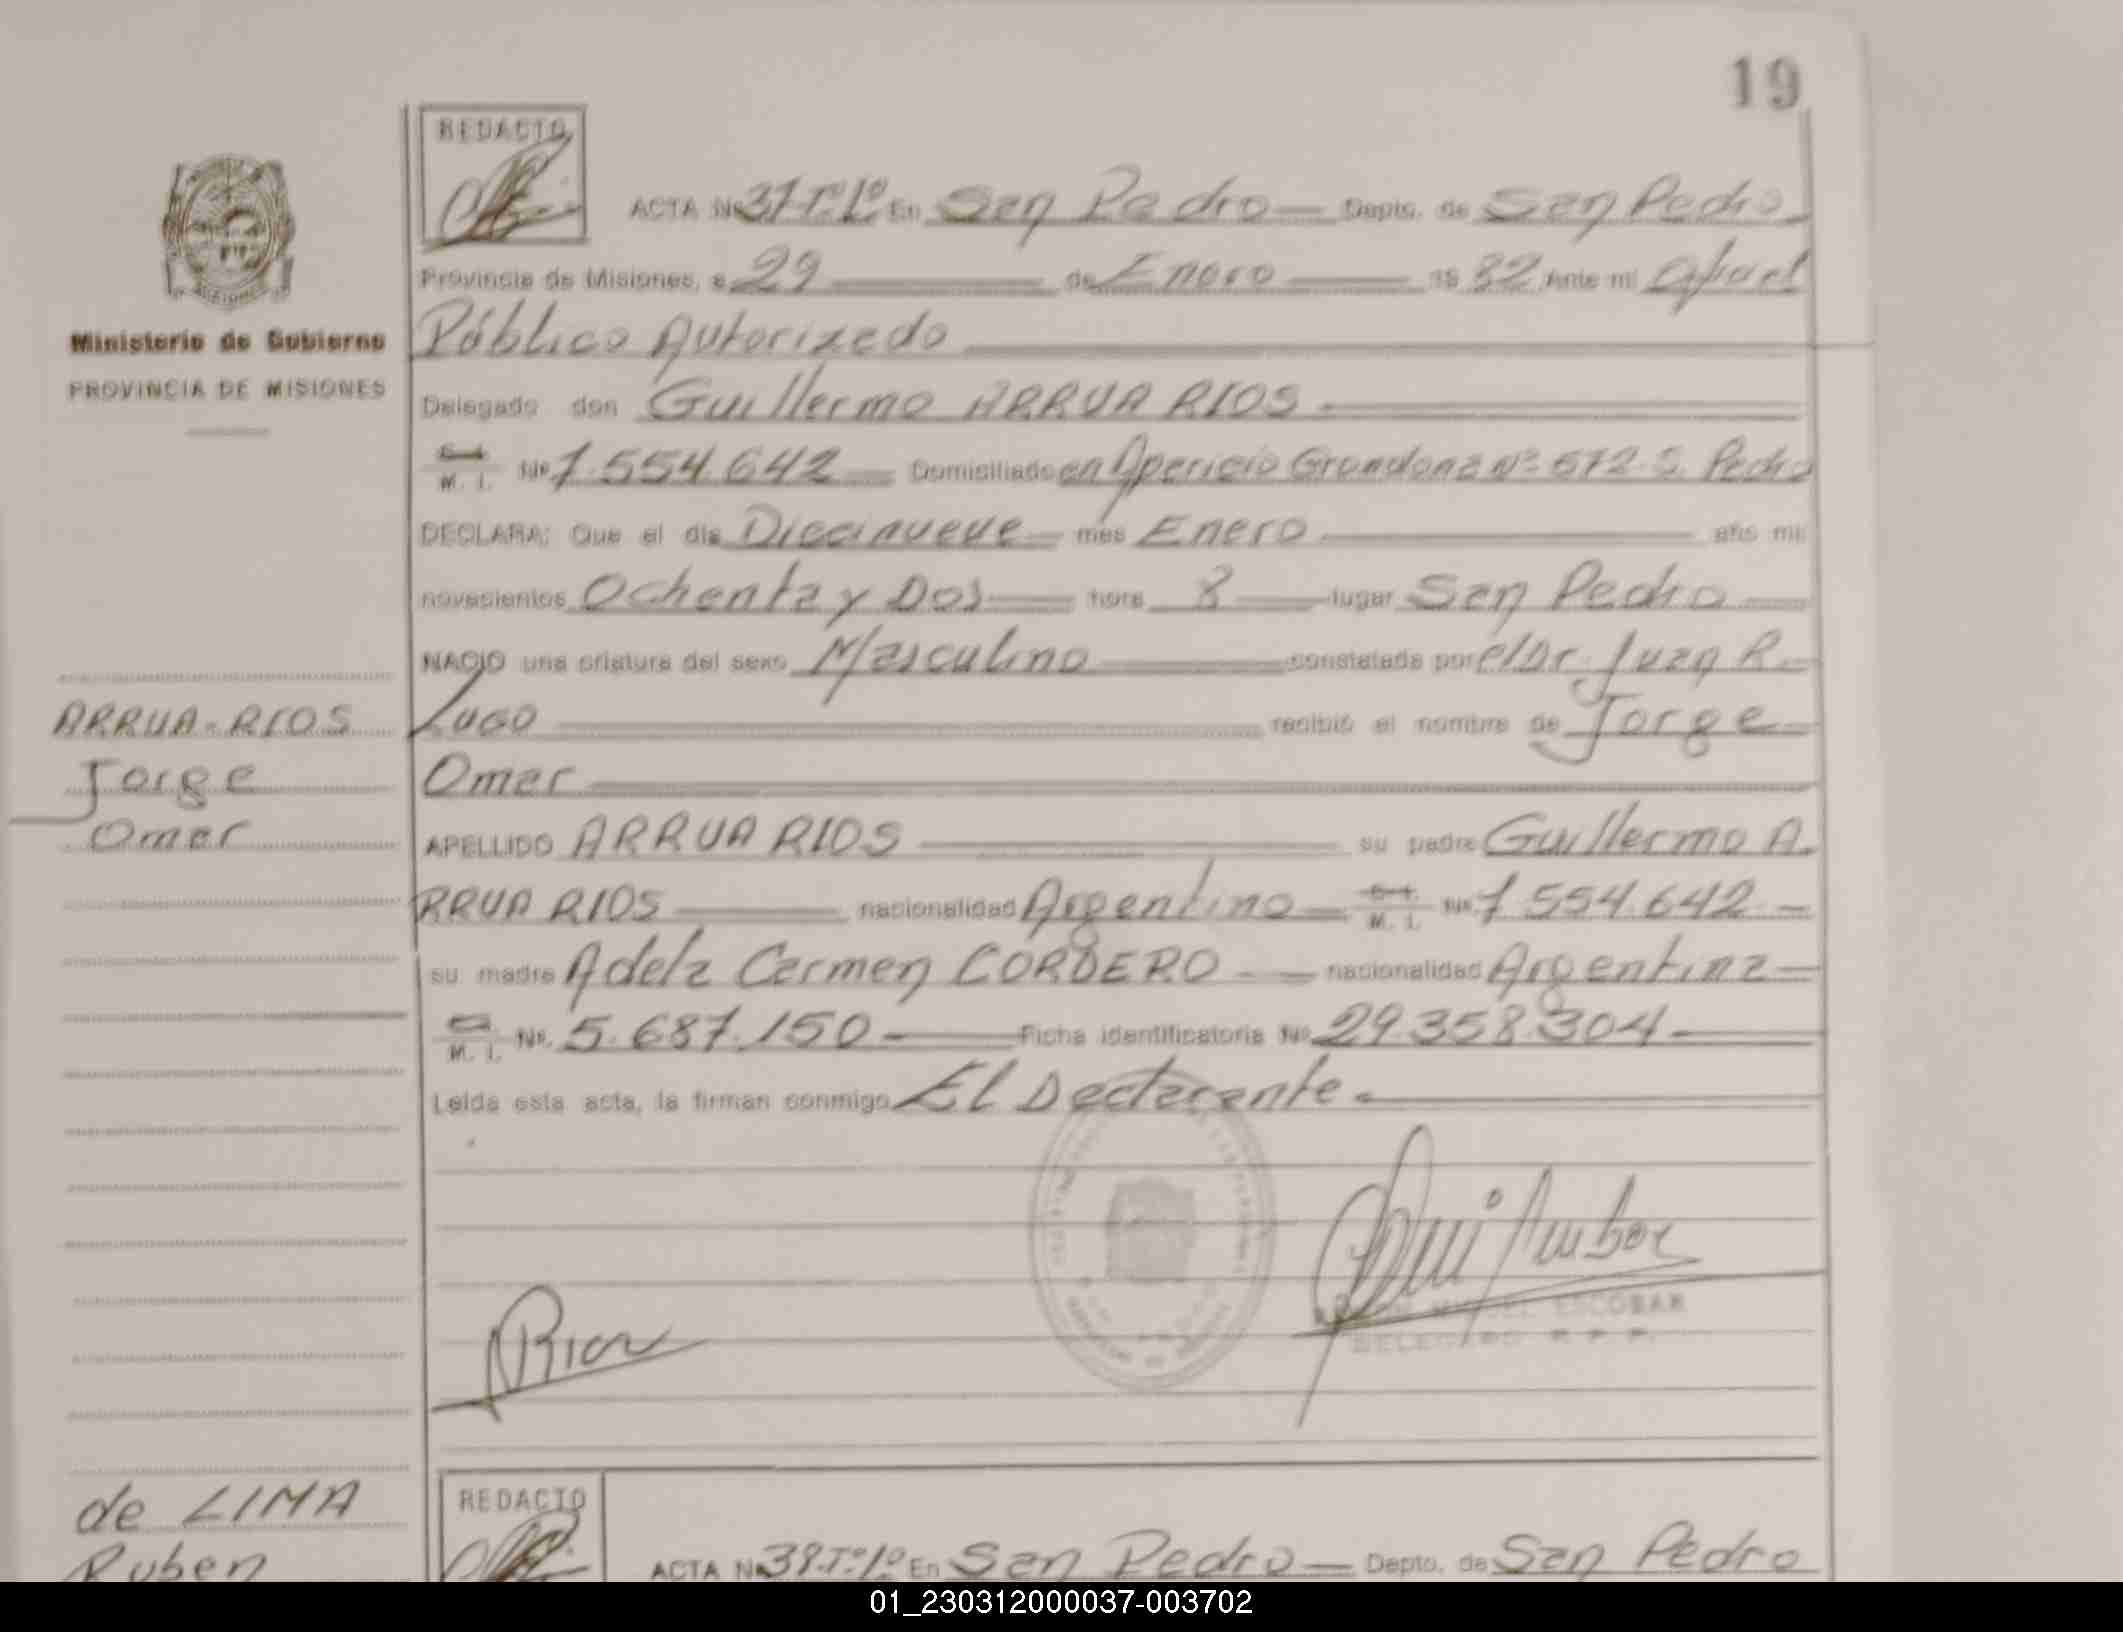 19
REDACTO
ACTA Nº 37 Tº 1º En San Pedro Depto. de San Pedro
Provincia de Misiones, a 29 de Enero 19 82 Ante mí
Público Autorizado
Ministerio de Gobierno
PROVINCIA DE MISIONES
Delegado don Guillermo ARRUA RIOS
M. I. Nº 7.554.642 Domiciliado en Aparicio Grondona Nº 672 S. Pedro
DECLARA: Que el día Diecinueve mes Enero año mil
novecientos Ochenta y Dos hora 8 lugar San Pedro
NACIO una criatura del sexo Masculino constatada por el Dr. Juan R.
Lugo recibió el nombre de Jorge
Omar
ARRUA-RIOS
Jorge
Omar
APELLIDO ARRUA RIOS su padre Guillermo A.
RRUA RIOS nacionalidad Argentino M. I. Nº 7.554.642
su madre Adela Carmen CORDERO nacionalidad Argentina
M. I. Nº 5.687.150 Ficha identificatoria Nº 29.358.304
Leída esta acta, la firman conmigo El Declarante.
MIGUEL ESCOBAR
DELEGADO R. P. P.
de LIMA
Ruben
REDACTO
ACTA Nº 38 Tº 1º En San Pedro Depto. de San Pedro
01_230312000037-003702